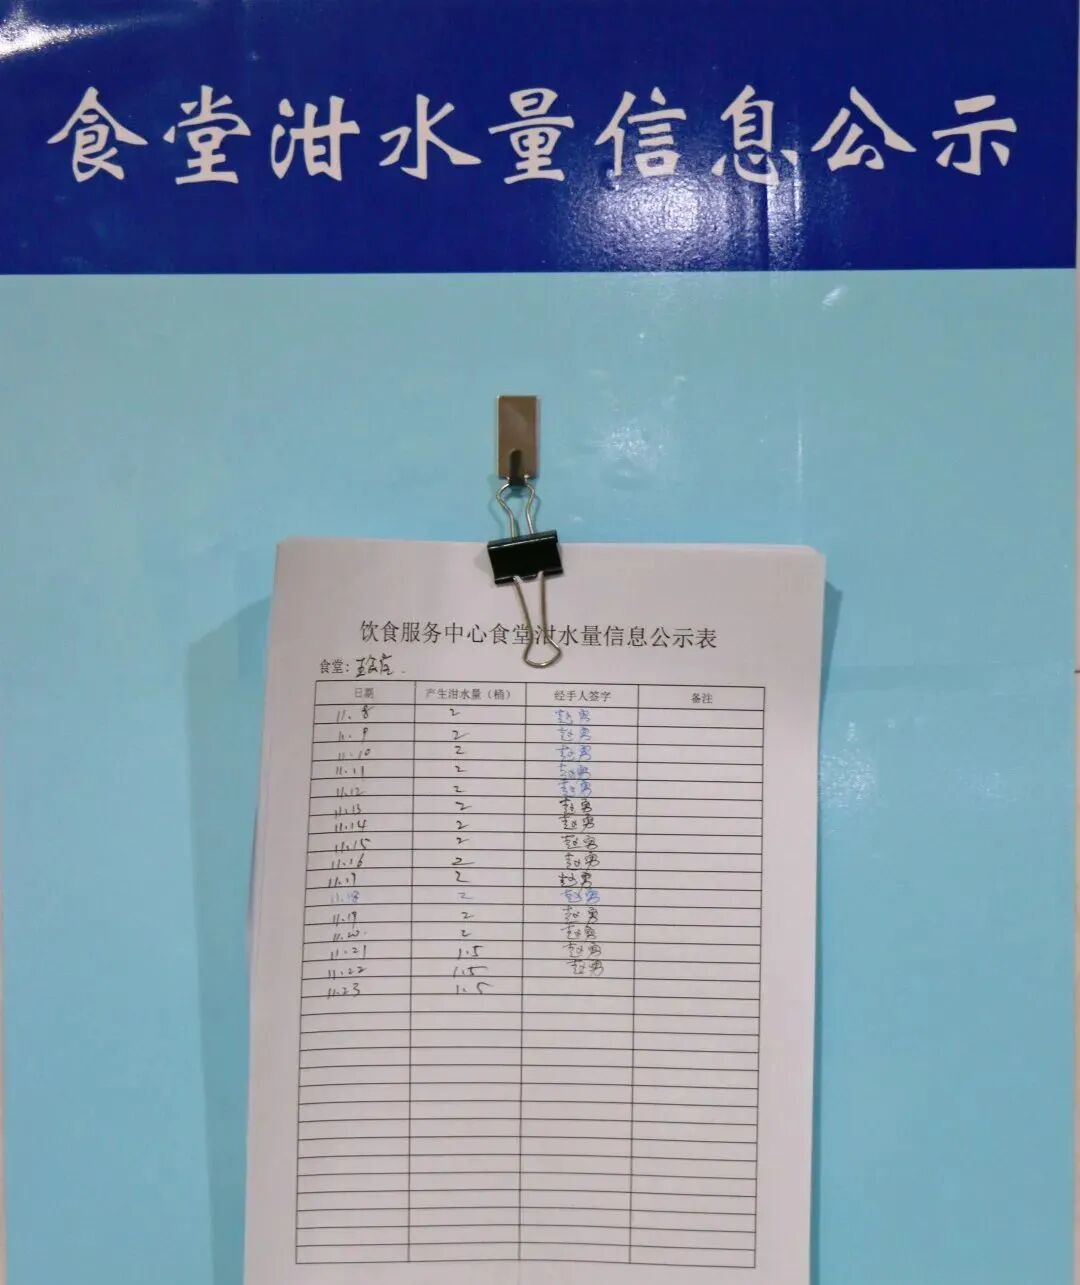 食堂泔水量信息公示
饮食服务中心食堂泔水量信息公示表
食堂：
日期 产生泔水量（桶） 经手人签字 备注
11.8 2 赵勇
11.9 2 赵勇
11.10 2 赵勇
11.11 2 赵勇
11.12 2 赵勇
11.13 2 赵勇
11.14 2 赵勇
11.15 2 赵勇
11.16 2 赵勇
11.17 2 赵勇
11.18 2 赵勇
11.19 2 赵勇
11.20. 2 赵勇
11.21 1.5 赵勇
11.22 1.5 赵勇
11.23 1.5